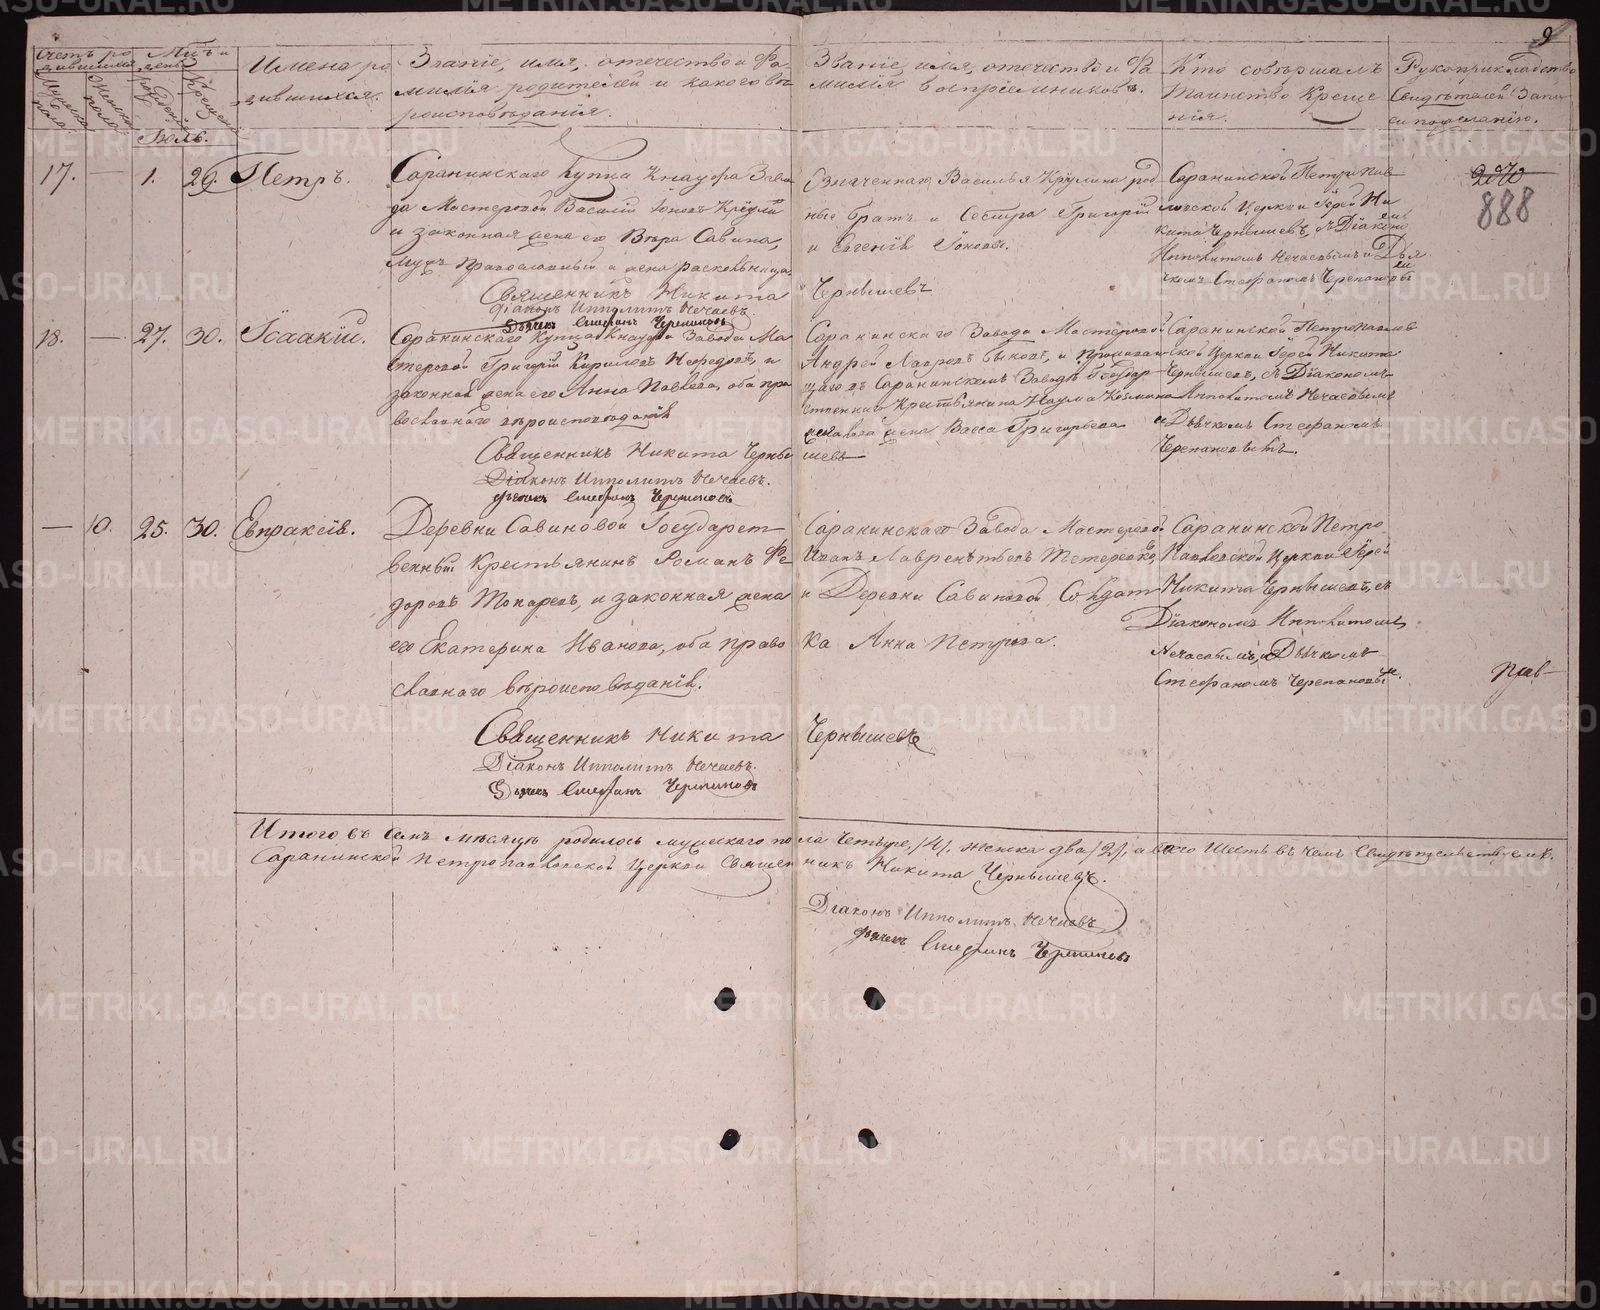 9
Счетъ ро
дившихся
Мужеска
пола.
Женска
пола.
Мѣс. и
день
рожденія
Крещенія
Имена ро
дившихся.
Званіе, имя, отечество и Фа
милія родителей и какого вѣ
роисповѣданія.
Званіе, имя, отечество и Фа
милія воспріемниковъ.
Кто совѣршалъ
таинство Креще
нія.
Рукоприкладство
Свидѣтелей Запи
си по желанію.
Іюль.
17.
—
1.
29.
Петръ.
Саранинскаго Купца Кнауфа Заво
да Мастеровой Василій Іоновъ
и законная жена его Вѣра Савина,
мужъ Православный а жена раскольница.
Священникъ Никита
Діаконъ Ипполитъ Нечаевъ.
Дьячекъ Стефанъ Черепановъ
Означеннаго Василья род
ные братъ и Сестра Григорій
и Евгенія Іоновы.
Чернышевъ
Саранинской Петропав
ловской Церкви Іерей Ни
кита Чернышевъ, съ Діакономъ
Ипполитомъ Нечаевымъ и Дья
чкомъ Стефаномъ Черепановы
888
18.
—
27.
30.
Ісаакій.
Саранинскаго Купца Кнауфа Завода Ма
стеровой Григорій Кириловъ Нефедовъ, и
законная жена его Анна Павлова, оба пра
вославнаго вѣроисповѣданія
Священникъ Никита Черны
Діаконъ Ипполитъ Нечаевъ.
Дьячекъ Стефанъ Черепановъ
Саранинскаго Завода Мастеровой
Андрей Лавровъ Быковъ, и проживаю
щаго въ Саранинскомъ Заводѣ Государ
ственнаго Крестьянина Наума Козмина
жена Васса Григорьева
шевъ
Саранинской Петропавлов
ской Церкви Іерей Никита
Чернышевъ, съ Діакономъ
Ипполитомъ Нечаевымъ
и Дьячкомъ Стефаномъ
Черепановымъ.
—
10.
25.
30.
Евпраксія.
Деревни Савиновой Государст
венный Крестьянинъ Романъ Фе
доровъ Токаревъ, и законная жена
его Екатерина Иванова, оба право
славнаго вѣроисповѣданія.
Священникъ Никита
Діаконъ Ипполитъ Нечаевъ.
Дьячекъ Стефанъ Черепановъ
Саранинскаго Завода Мастеровой
Иванъ Лаврентьевъ
и Деревни Савиновой Солдат
ка Анна Петрова.
Чернышевъ
Саранинской Петро
Павловской Церкви Іерей
Никита Чернышевъ, съ
Діакономъ Ипполитомъ
Нечаевымъ, и Дьячкомъ
Стефаномъ Черепановы
Итого въ семъ мѣсяцѣ родилось мужескаго пола Четыре, /4/. женска два /2/, а всего Шесть въ чемъ Свидѣтельствуемъ.
Саранинской Петропавловской Церкви Священникъ Никита Чернышевъ.
Діаконъ Ипполитъ Нечаевъ
Дьячекъ Стефанъ Черепановъ
METRIKI.GASO-URAL.RU